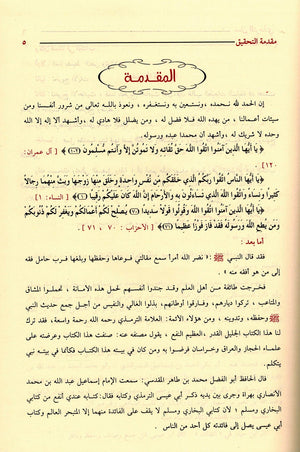 مقدمة التحقيق ٥
المقدمـة
إن الحمد لله نحمده ، ونستعين به ونستغفره ، ونعوذ باللـه تعالى من شرور أنفسنا ومن
سيئات أعمالنا ، من يهده الله فلا مضل له ، ومن يضلل فلا هادي له ، وأشهد ألا إله إلا الله
وحده لا شريك له ، وأشهد أن محمدا عبده ورسوله.
﴿يَا أَيُّهَا الَّذِينَ آمَنُوا اتَّقُوا اللَّهَ حَقَّ تُقَاتِهِ وَلَا تَمُوتُنَّ إِلَّا وَأَنتُم مُّسْلِمُونَ (١٠٢)﴾ [ آل عمران:
١٢٠ ].
﴿يَا أَيُّهَا النَّاسُ اتَّقُوا رَبَّكُمُ الَّذِي خَلَقَكُم مِّن نَّفْسٍ وَاحِدَةٍ وَخَلَقَ مِنْهَا زَوْجَهَا وَبَثَّ مِنْهُمَا رِجَالًا
كَثِيرًا وَنِسَاءً وَاتَّقُوا اللَّهَ الَّذِي تَسَاءَلُونَ بِهِ وَالْأَرْحَامَ إِنَّ اللَّهَ كَانَ عَلَيْكُمْ رَقِيبًا (١)﴾ [ النساء : ١]
﴿يَا أَيُّهَا الَّذِينَ آمَنُوا اتَّقُوا اللَّهَ وَقُولُوا قَوْلًا سَدِيدًا (٧٠) يُصْلِحْ لَكُمْ أَعْمَالَكُمْ وَيَغْفِرْ لَكُمْ ذُنُوبَكُمْ
وَمَن يُطِعِ اللَّهَ وَرَسُولَهُ فَقَدْ فَازَ فَوْزًا عَظِيمًا (٧١)﴾ [ الأحزاب : ٧٠ ، ٧١ ].
أما بعد :
فقد قال النبي ﷺ : « نضر الله امرأ سمع مقالتي فوعاها وحفظها وبلغها فرب حامل فقه
إلى من هو أفقه منه » .
فخرجت طائفة من أهل العلم وقد جندوا أنفسهم لحمل هذه الأمانة ، تحملوا المشاق
والمتاعب ، تركوا ديارهم ، وفارقوا أوطانهم ، بذلوا الغالي والنفيس من أجل جمع حديث النبي
ﷺ وحفظه ، وتدوينه ، ومن هؤلاء الأئمة : العلامة الترمذي رحمه الله رحمة واسعة ، فقد ترك
لنا هذا الكتاب الجليل القدر ، العظيم النفع ، يقول مصنفه عنه : صنفت هذا الكتاب وعرضته على
علماء الحجاز والعراق وخراسان فرضوا به ومن كان في بيته هذا الكتاب فكأنما في بيته نبي
يتكلم.
قال الحافظ أبو الفضل محمد بن طاهر المقدسي : سمعت الإمام إسماعيل عبد الله بن محمد
الأنصاري بهراة وجرى بين يديه ذكر أبي عيسى الترمذي وكتابه فقال: كتابه عندي أنفع من كتابي
البخاري ومسلم ؛ لأن كتابي البخاري ومسلم لا يقف على الفائدة منهما إلا المتبحر العالم وكتاب
أبي عيسى يصل إلى فائدته كل أحد من الناس .